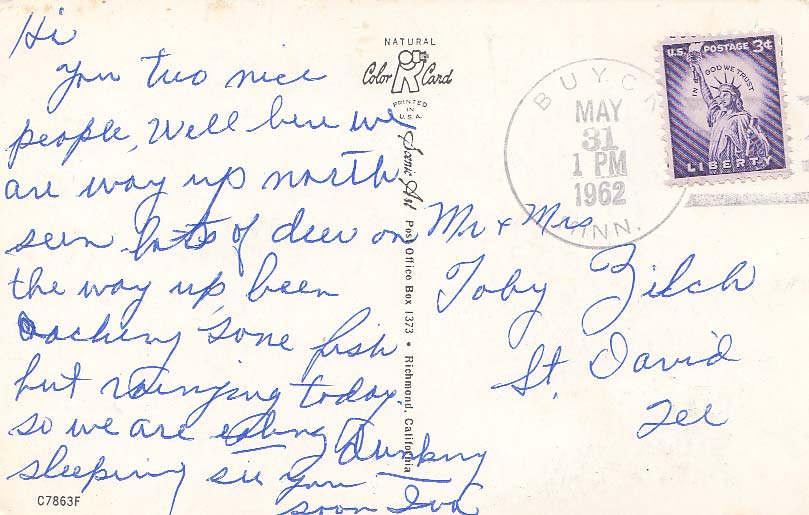 Hi
You two nice
people, Well here we
are way up north
seen lots of deer on
the way up been
caching some fish
but rainging today.
so we are eating Drinking
sleeping see you
soon Iva
C7863F
NATURAL
Color Card
PRINTED
IN
U.S.A.
Scenic Art Post Office Box 1373 • Richmond, California
BUYCK
MAY
31
1 PM
1962
MINN.
U.S. POSTAGE 3¢
IN GOD WE TRUST
LIBERTY
Mr & Mrs
Toby Zilch
St. David
Ill